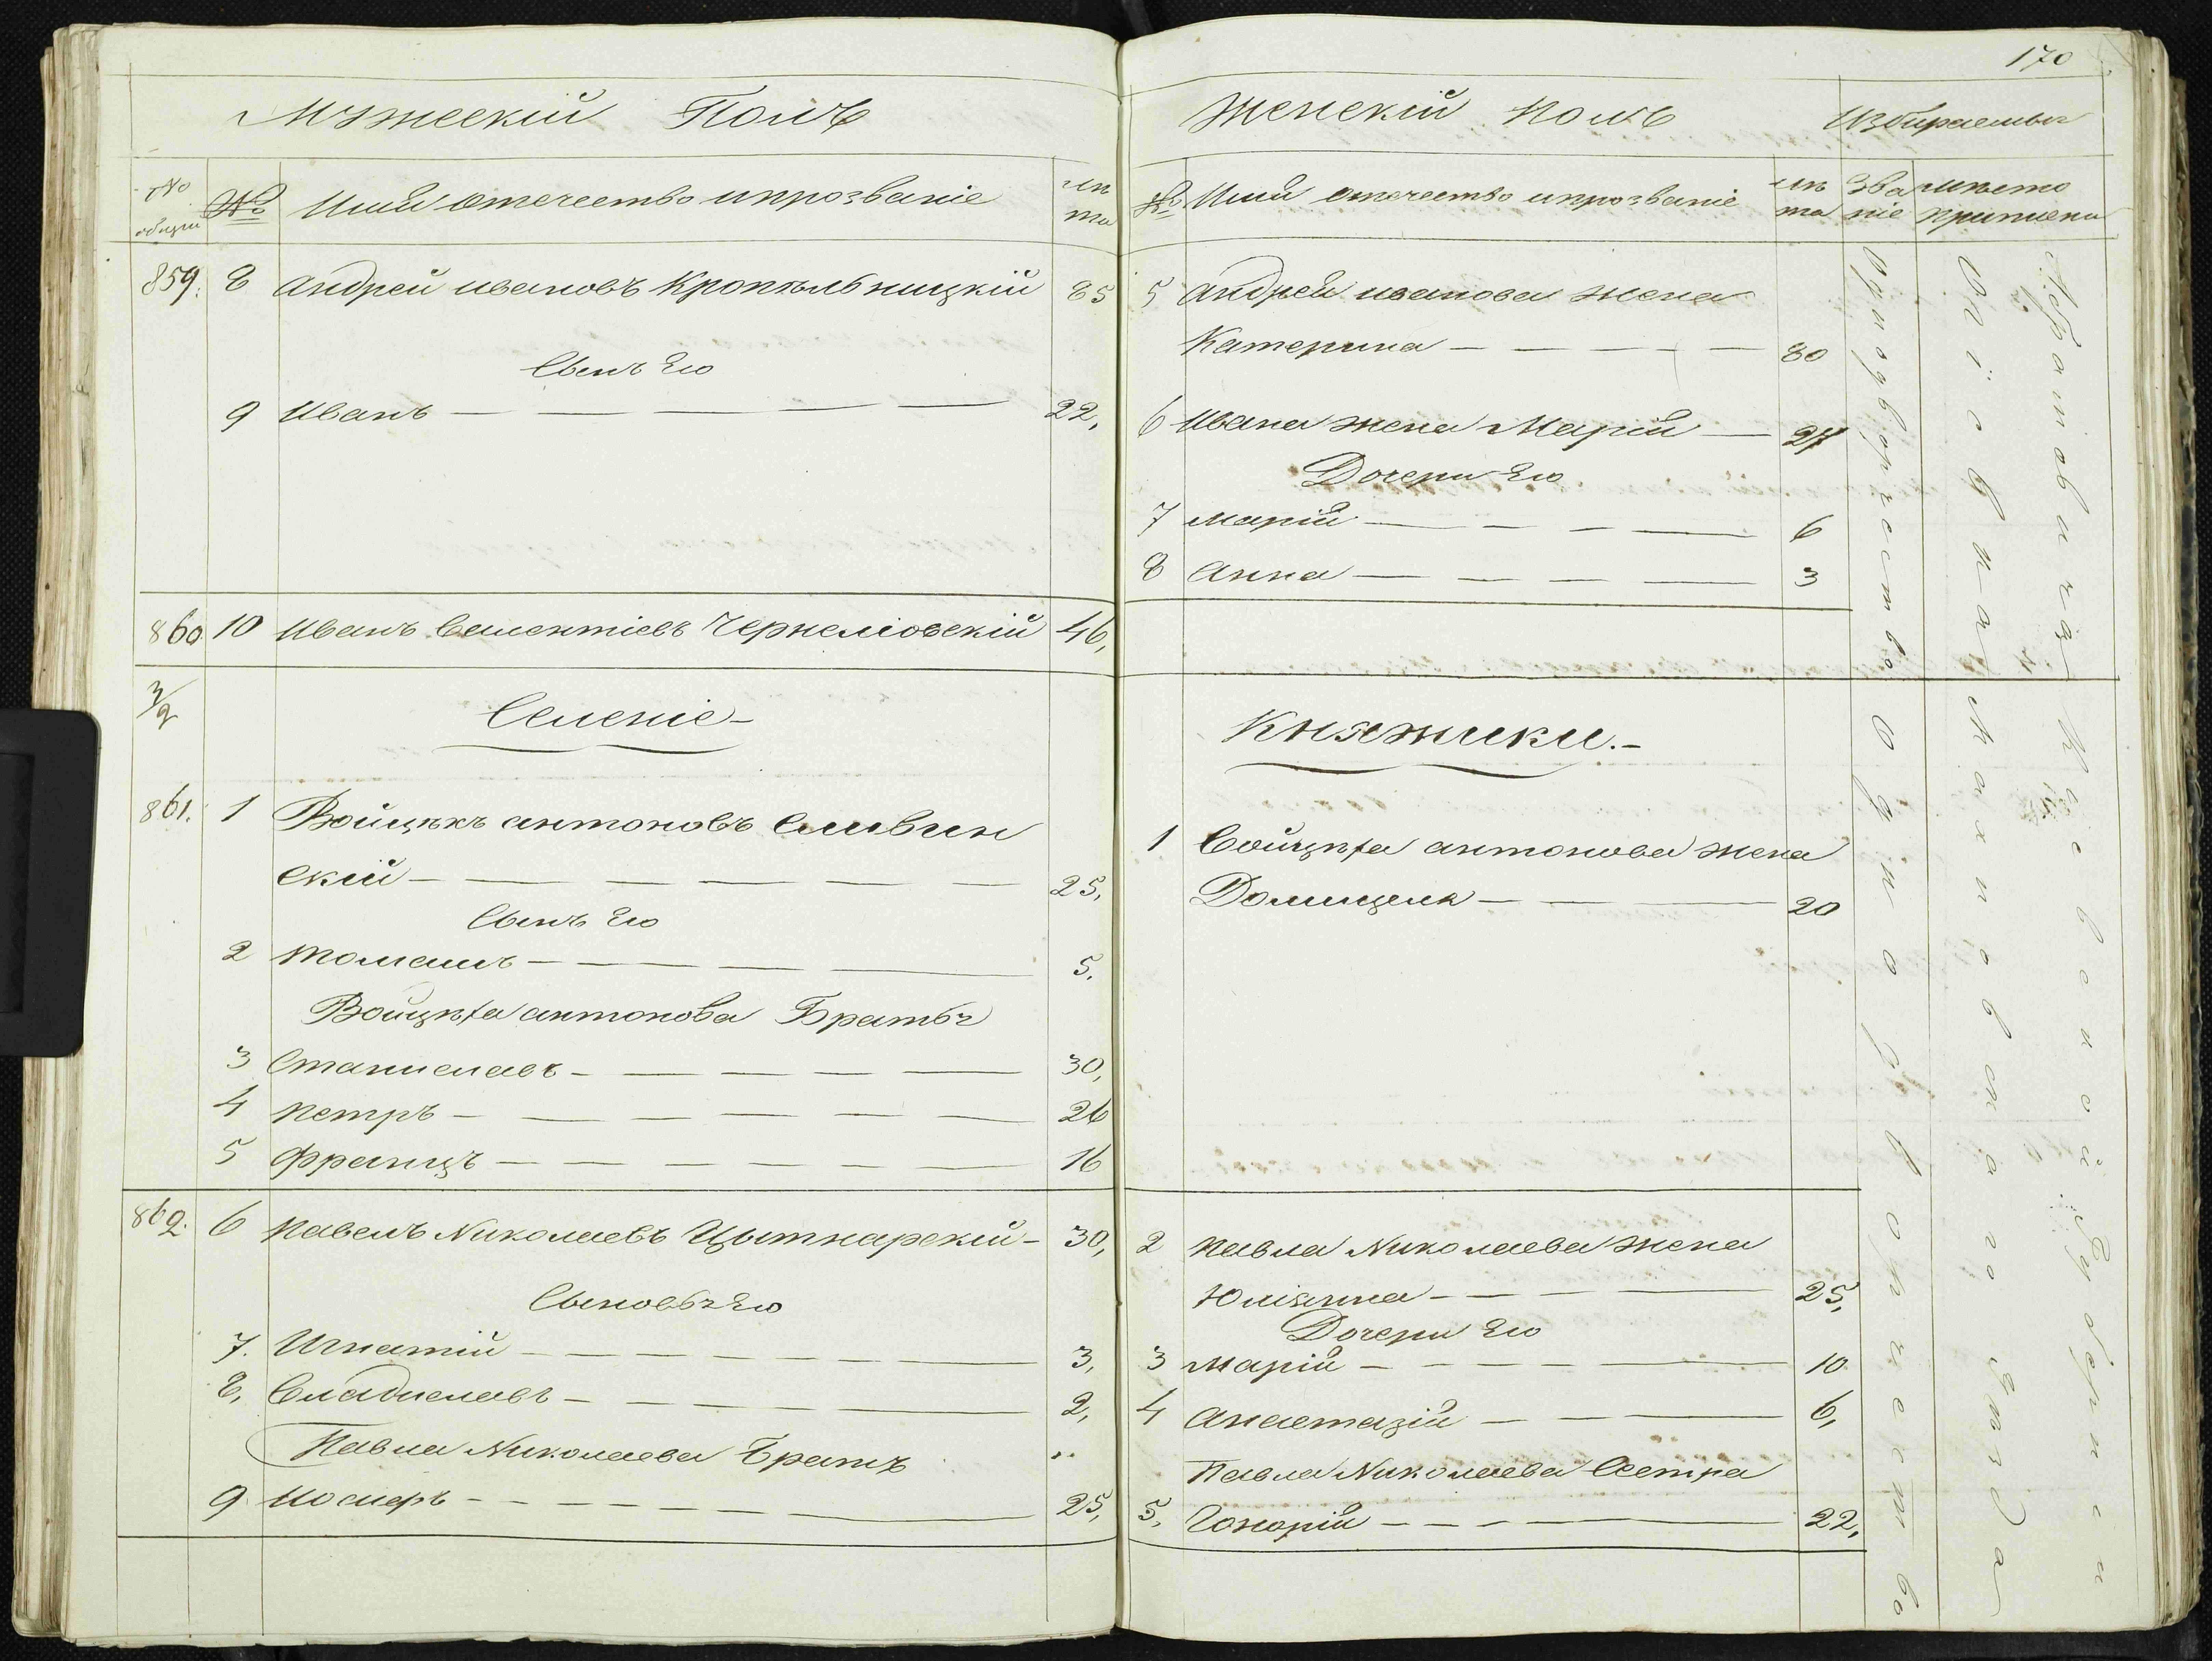 170
Мужескій Полъ
№ общій
№
Имя отечество ипрозваніе
лѣ та
859. 8 Андрей ивановъ Кропѣльницкій 85
Сынъ Его
9 Иванъ — — — — — 22,
860. 10 Иванъ Валентіевъ Чернеліовскій 46,
3/2
Селеніе —
861. 1 Войцѣхъ антоновъ Сливин
скій — — — — — — 25,
Сынъ Его
2 Томашъ — — — — — 5.
Войцѣха антонова Братья
3 Станиславъ — — — — — 30,
4 Петръ — — — — — — 26
5 Францъ — — — — — — 16
862. 6 Павелъ Николаевъ Цытнарскій — 30,
Сыновья Его
7. Игнатій — — — — — — 3,
8, Владиславъ — — — — — — 2,
Павла Николаева Братъ
9 Иосифъ — — — — — — 25,
Женскій Полъ
Избираемыя
№
Имя отечество ипрозваніе
лѣ та
Зва ніе
мѣсто приписки
5 Андрея иванова жена
Катерина — — — — — 80
6 Ивана жена Марія — 27
Дочери Его
7 Марія — — — — — 6
8 Анна — — — — 3
Княжики. —
1 Войцѣха антонова жена
Домицеля — — — 20
2 Павла Николаева жена
Юліянна — — — — 25,
Дочери Его
3 Марія — — — — — 10
4 Анастазія — — — 6,
Павла Николаева Сестра
5, Гонорія — — — — 22,
Однодворчество
Однодворчество
Махновкаго уѣзда
Кіевской Губерніи